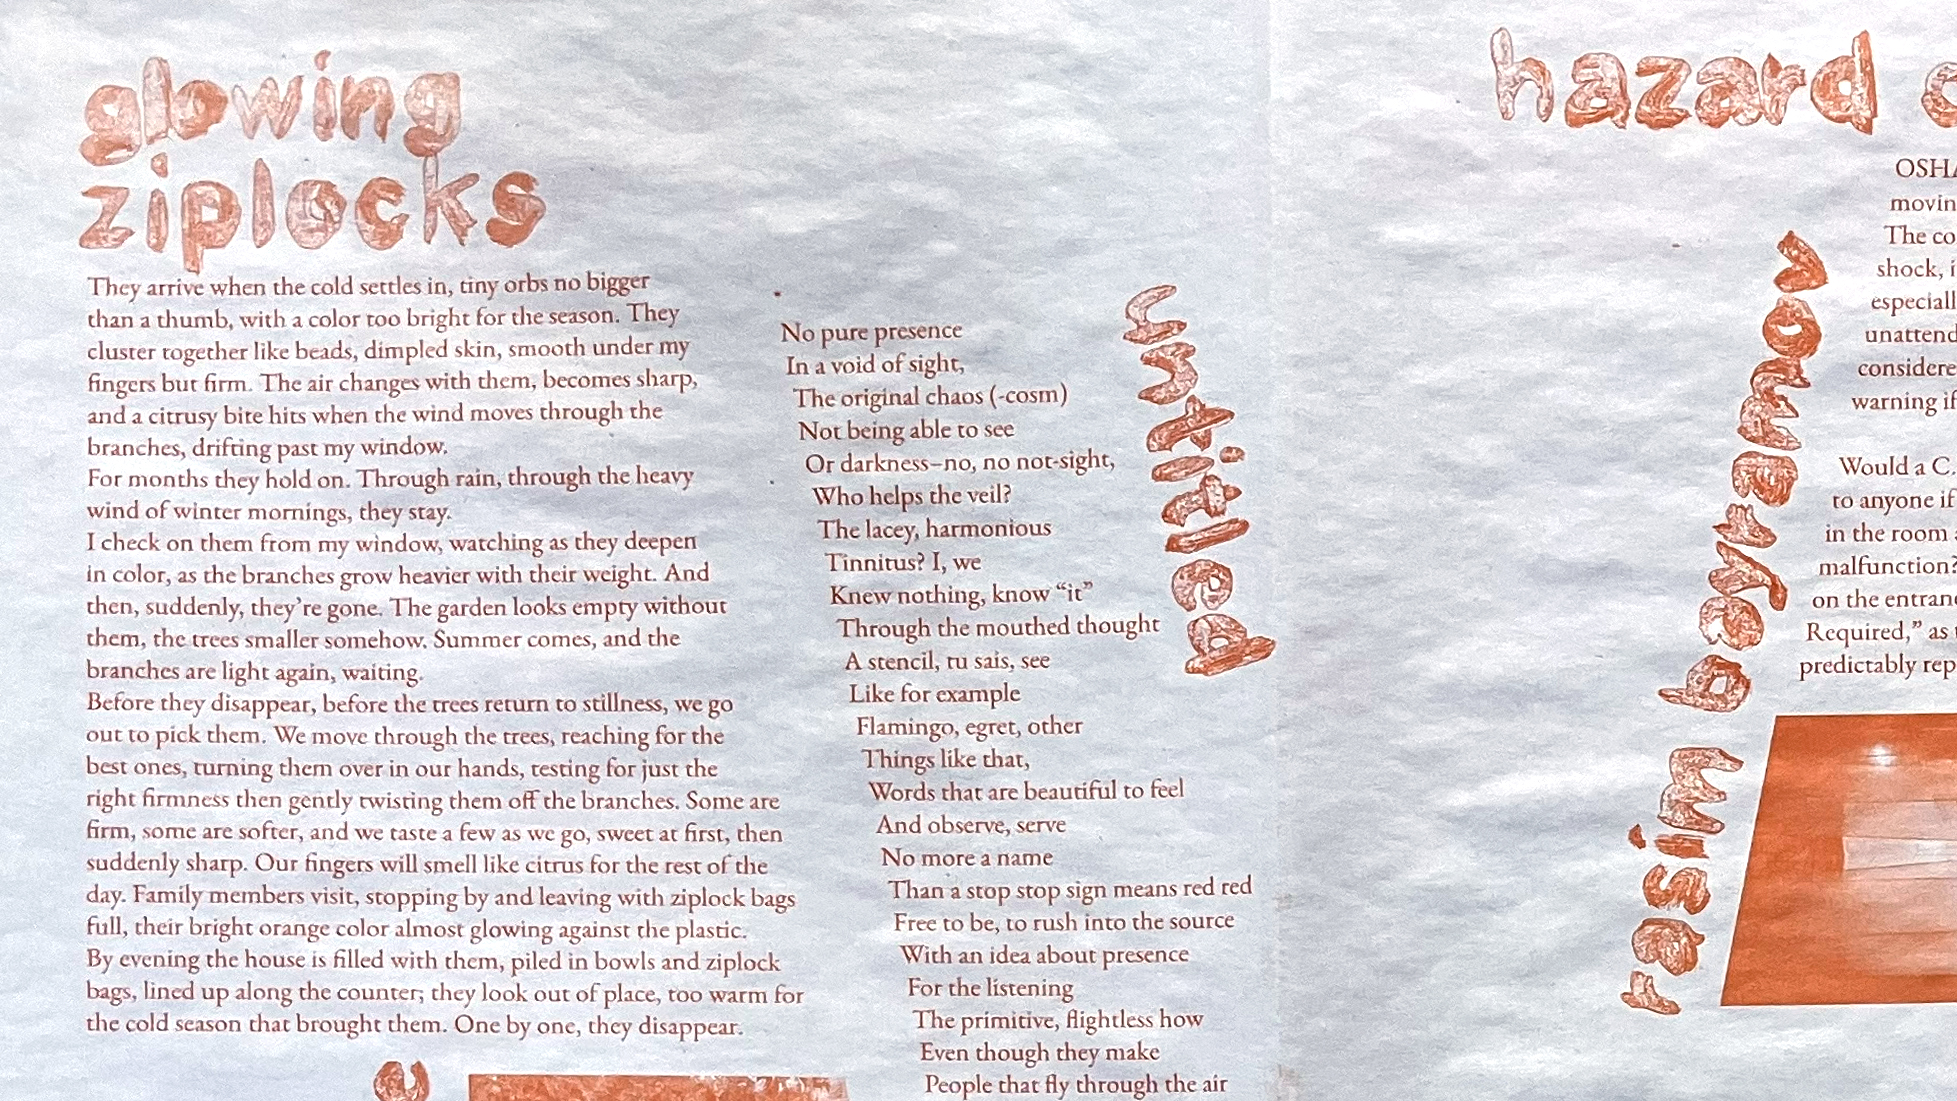 glowing
ziplocks
They arrive when the cold settles in, tiny orbs no bigger
than a thumb, with a color too bright for the season. They
cluster together like beads, dimpled skin, smooth under my
fingers but firm. The air changes with them, becomes sharp,
and a citrusy bite hits when the wind moves through the
branches, drifting past my window.
For months they hold on. Through rain, through the heavy
wind of winter mornings, they stay.
I check on them from my window, watching as they deepen
in color, as the branches grow heavier with their weight. And
then, suddenly, they're gone. The garden looks empty without
them, the trees smaller somehow. Summer comes, and the
branches are light again, waiting.
Before they disappear, before the trees return to stillness, we go
out to pick them. We move through the trees, reaching for the
best ones, turning them over in our hands, testing for just the
right firmness then gently twisting them off the branches. Some are
firm, some are softer, and we taste a few as we go, sweet at first, then
suddenly sharp. Our fingers will smell like citrus for the rest of the
day. Family members visit, stopping by and leaving with ziplock bags
full, their bright orange color almost glowing against the plastic.
By evening the house is filled with them, piled in bowls and ziplock
bags, lined up along the counter; they look out of place, too warm for
the cold season that brought them. One by one, they disappear.
untitled
No pure presence
In a void of sight,
The original chaos (-cosm)
Not being able to see
Or darkness–no, no not-sight,
Who helps the veil?
The lacey, harmonious
Tinnitus? I, we
Knew nothing, know “it”
Through the mouthed thought
A stencil, tu sais, see
Like for example
Flamingo, egret, other
Things like that,
Words that are beautiful to feel
And observe, serve
No more a name
Than a stop stop sign means red red
Free to be, to rush into the source
With an idea about presence
For the listening
The primitive, flightless how
Even though they make
People that fly through the air
hazard
rasim bekramov
OSHA
movin
The co
shock, i
especiall
unattend
considere
warning if
Would a C.
to anyone if
in the room
malfunction?
on the entran
Required,” as
predictably rep